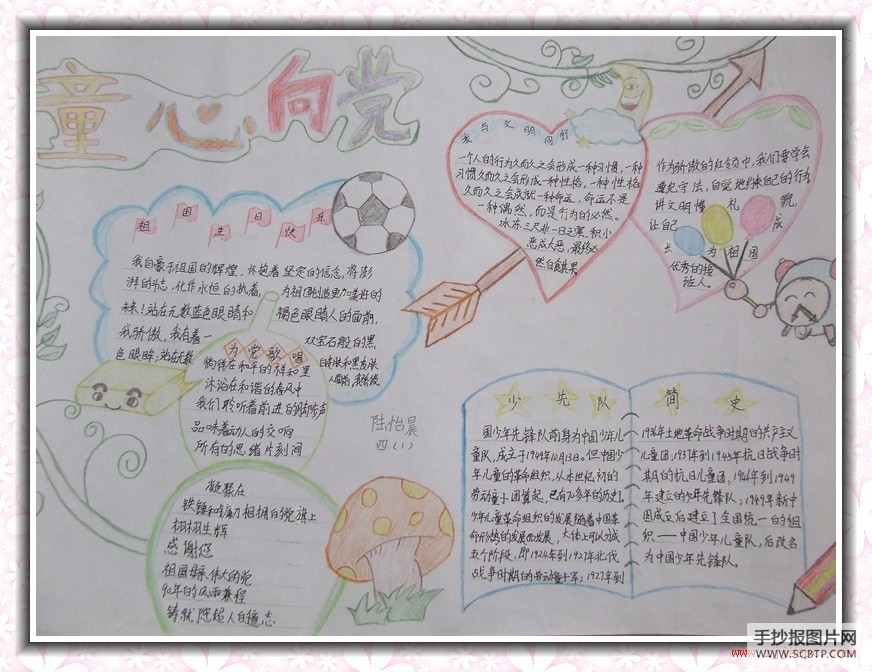 童心向党
祖国生日快乐
我自豪于祖国的辉煌，怀揣着坚定的信念，将澎
湃的斗志，化作永恒的执着，为祖国创造更加美好的
未来！站在无数蓝色眼睛和褐色眼睛人的面前，
我骄傲，我有着一双宝石般的黑
色眼眸；站在无数
白皮肤和黑皮肤
人面前，我骄傲
为党歌唱
徜徉在和平的祥和里
沐浴在和谐的春风中
我们聆听着前进的脚步声
品味着动人的交响
所有的思绪片刻间
凝聚在
铁锤和镰刀相拥的党旗上
栩栩生辉
感谢您
祖国母亲、伟大的党
90年的风雨兼程
铸就陆怡晨
四(1)
我与文明同行
一个人的行为久而久之会形成一种习惯，一种
习惯久而久之会形成一种性格，一种性格
久而久之会成就一种命运，命运不是
一种偶然，而是行为的必然。
冰冻三尺非一日之寒，积小
恶成大恶，最终必
然自食其果
作为骄傲的红领巾，我们要学会
遵纪守法，自觉地约束自己的行为
讲文明懂礼貌
让自己成
长为祖国
优秀的接
班人。
少先队简史
国少年先锋队前身为中国少年儿
童队，成立于1949年10月13日。但中国少
年儿童的革命组织，从本世纪初的
劳动童子团算起，已有70多年的历史了。
少年儿童革命组织的发展随着中国革
命形势的发展而发展，大体上可以分成
五个阶段，即1924年到1927年北伐
战争时期的劳动童子军；1927年到
1936年土地革命战争时期的共产主义
儿童团，1937年到1945年抗日战争时
期的抗日儿童团，1946年到1949
年建立的少年先锋队；1949年新中
国成立后建立了全国统一的组
织——中国少年儿童队，后改名
为中国少年先锋队。
手抄报图片网
WWW.SCBTP.COM